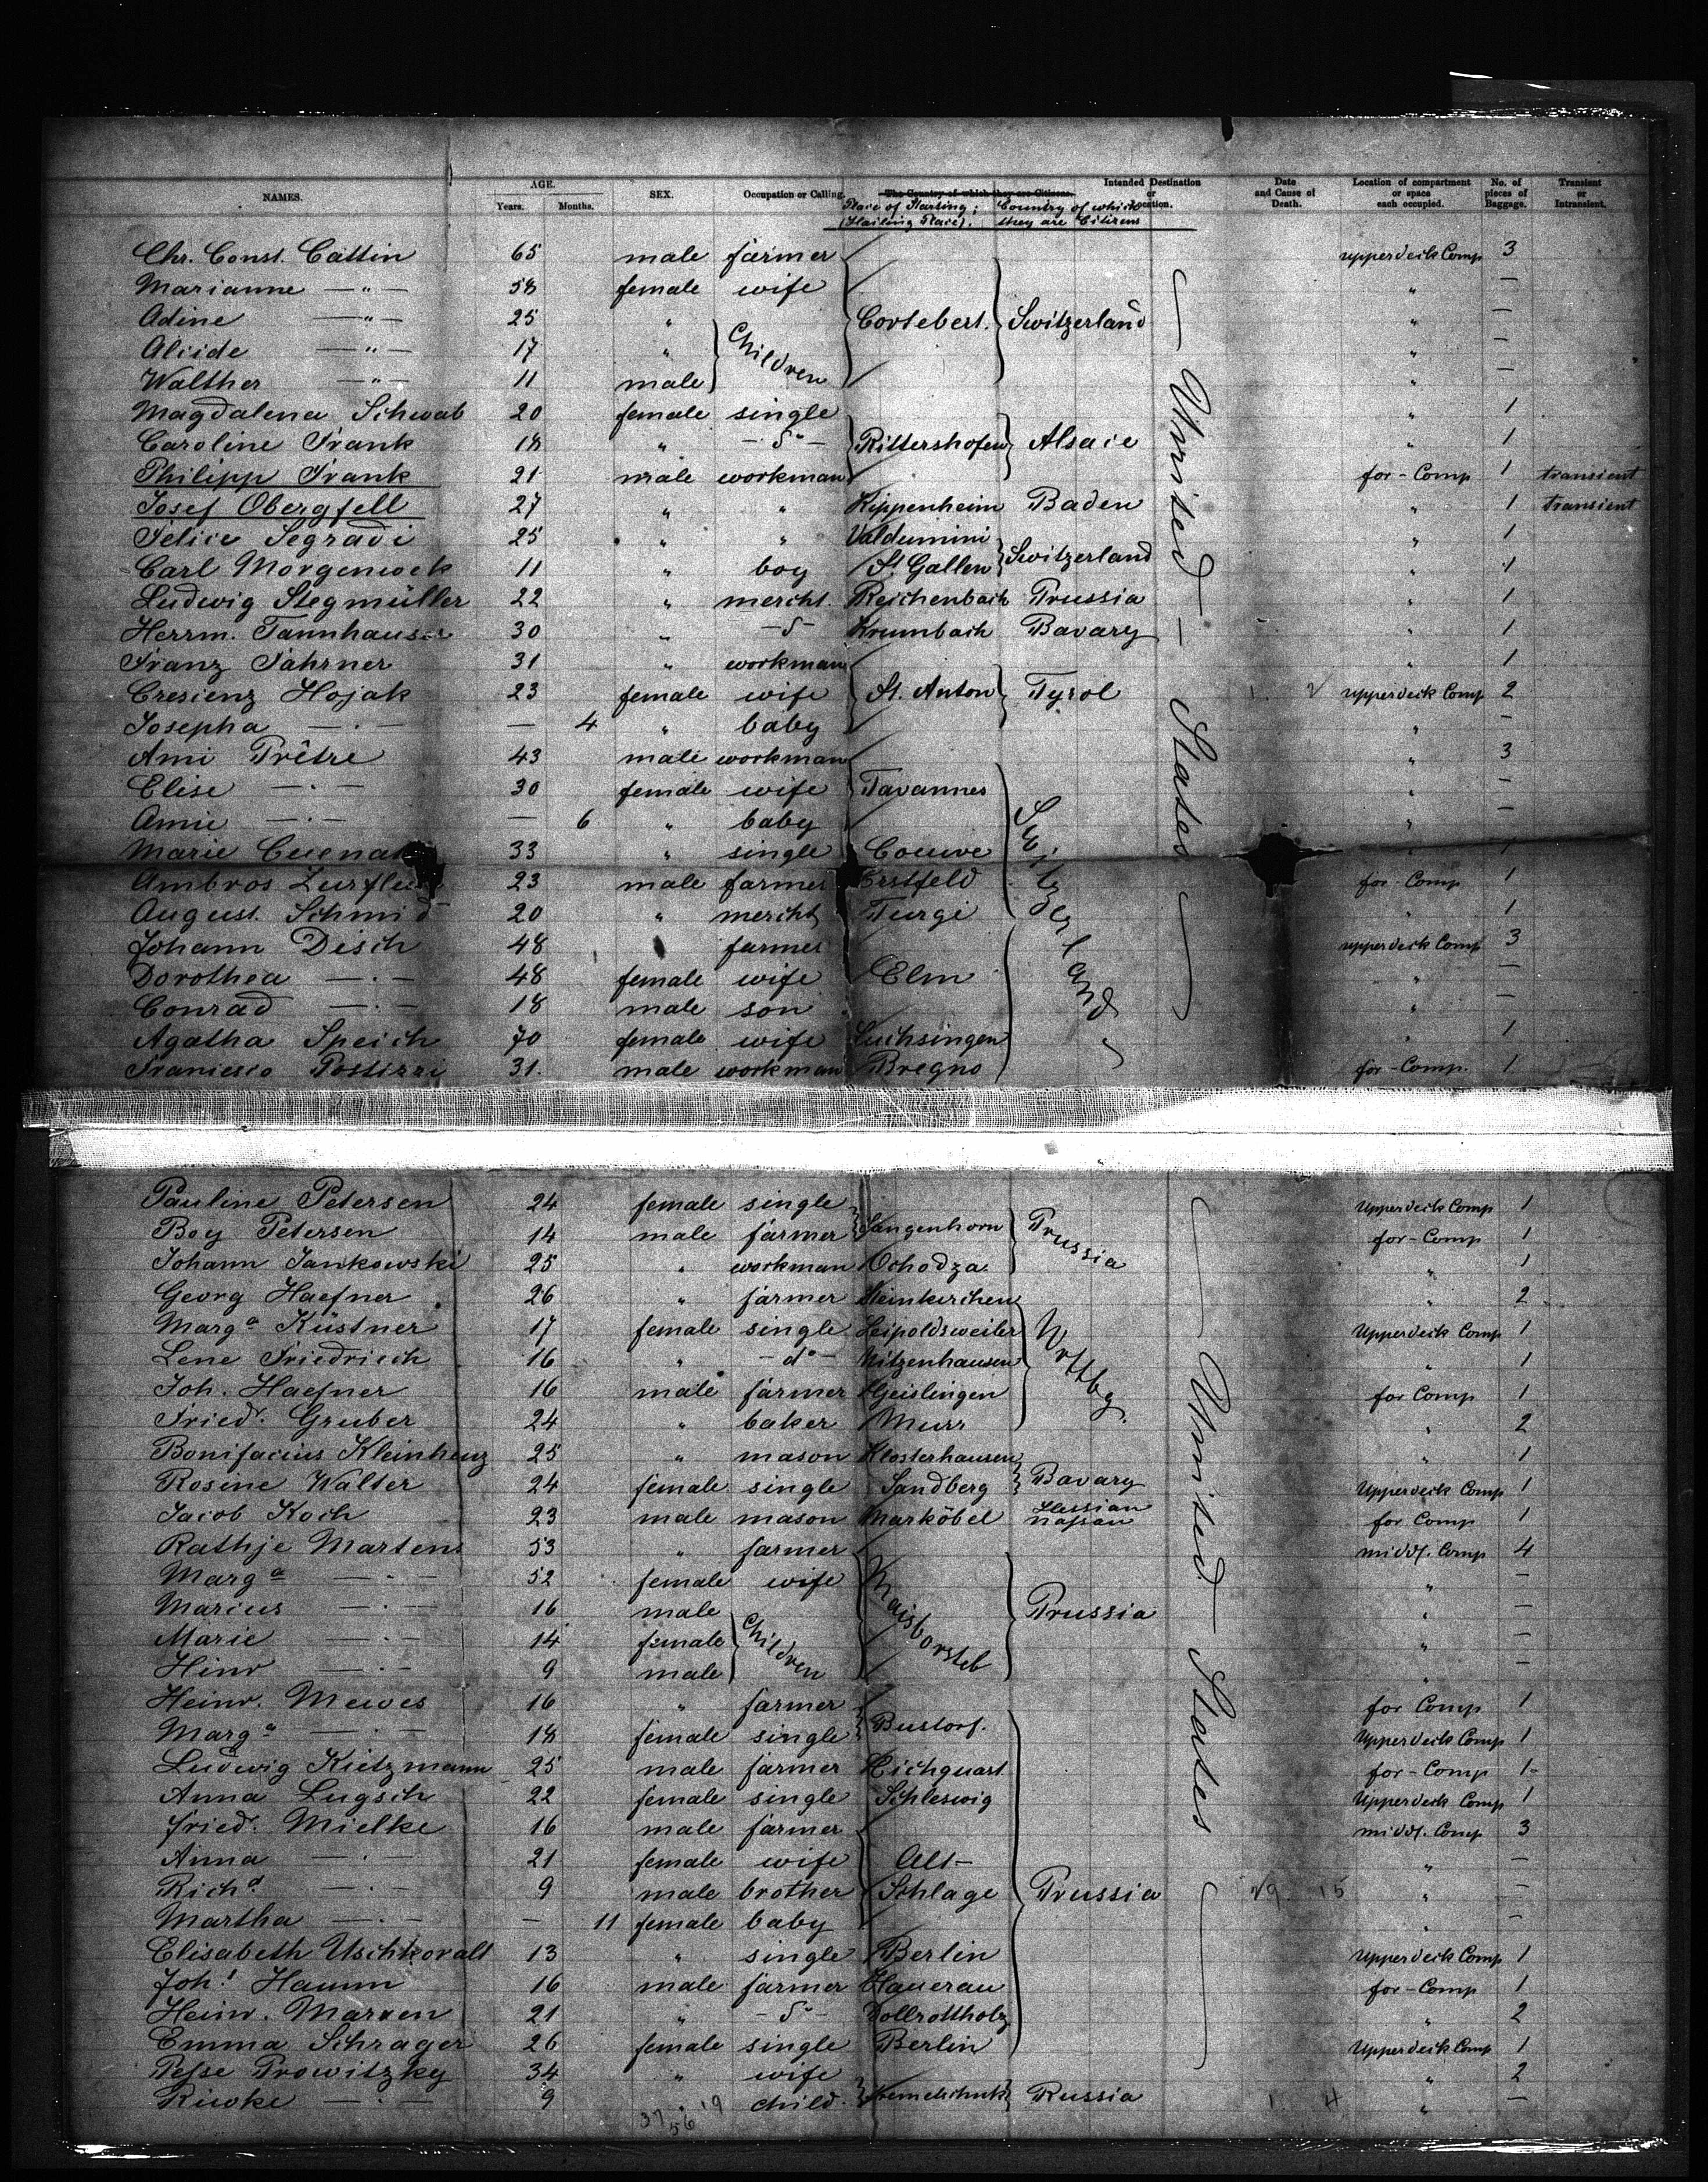 NAMES. AGE. Years. Months. SEX. Occupation or Calling. The Country of which they are Citizens. Intended Destination or Location. Date and Cause of Death. Location of compartment or space each occupied. No. of pieces of Baggage. Transient or Intransient.
Place of Starting; (Hailing Place). Country of which they are Citizens
Chr. Const. Cattin 65 male farmer upperdeck Comp 3
Marianne — " — 58 female wife " —
Adine — " — 25 " Children Cortebert. Switzerland " —
Alcide — " — 17 " " —
Walther — " — 11 male " —
Magdalena Schwab 20 female single " 1
Caroline Frank 18 " — d° — Rittershofen Alsace " 1
Philipp Frank 21 male workman for-Comp 1 transient
Josef Obergfell 27 " " Kippenheim Baden " 1 transient
Felice Segradi 25 " " Valdumini " 1
Carl Morgeneck 11 " boy St. Gallen Switzerland " 1
Ludwig Stegmüller 22 " mercht. Reichenbach Prussia " 1
Herrm. Tannhauser 30 " — d° — Krumbach Bavary " 1
Franz Fahrner 31 " workman " 1
Cresienz Hojak 23 female wife St. Anton Tyrol upperdeck Comp 2
Josepha — " — — 4 " baby " —
Ami Prêtre 43 male workman " 3
Elise — " — 30 female wife Tavannes " —
Amie — " — — 6 " baby " —
Marie Cuenat 33 " single Coeuve Switzerland " 1
Ambros Zurfluh 23 male farmer Erstfeld for-Comp 1
August Schmid 20 " mercht Turgi " 1
Johann Disch 48 farmer upperdeck Comp 3
Dorothea — " — 48 female wife Elm " —
Conrad — " — 18 male son " —
Agatha Speich 70 female wife Luchsingen " 1
Francesco Postizzi 31. male workman Bregno for-Comp. 1
— United — States —
Pauline Petersen 24 female single Upperdeck Comp 1
Boy Petersen 14 male farmer Langenhorn Prussia for-Comp 1
Johann Jankowski 25 " workman Ochodza " 1
Georg Haefner 26 " farmer Steinkirchen " 2
Marg.a Küstner 17 female single Leipoldsweiler Wrttbg. Upperdeck Comp 1
Lene Friedrich 16 " — d° — Nitzenhausen " 1
Joh. Haefner 16 male farmer Geislingen for Comp 1
Friedr. Gruber 24 " baker Murr " 2
Bonifacius Kleinhenz 25 " mason Klosterhausen " 1
Rosine Walter 24 female single Sandberg Bavary Upperdeck Comp 1
Jacob Koch 23 male mason Marköbel Hessian Nassau for Comp 1
Rathje Martens 53 " farmer middl. Comp 4
Marg.a — " — 52 female wife " —
Marcus — " — 16 male Children Kaisborstel Prussia " —
Marie — " — 14 female " —
Hinr — " — 9 male " —
Heinr. Mewes 16 " farmer for Comp 1
Marg.a — " — 18 female single Bustorf. Upperdeck Comp 1
Ludwig Kietzmann 25 male farmer Eichquast for-Comp 1
Anna Lugsch 22 female single Schleswig Upperdeck Comp 1
Fried. Mielke 16 male farmer middl. Comp 3
Anna — " — 21 female wife Alt- " —
Richd. — " — 9 male brother Schlage Prussia 29. 15 " —
Martha — " — — 11 female baby " —
Elisabeth Uschkoralt 13 " single Berlin Upperdeck Comp 1
Joh! Hamm 16 male farmer Hanerau for-Comp 1
Heinr. Marxen 21 " — d° — Dollrottholz " 2
Emma Schrager 26 female single Berlin Upperdeck Comp 1
Pesse Prowitzky 34 " wife " 2
Riwke — " — 9 " child Kremetschuk Russia 1. 4 " —
37 56 19
— United — States —